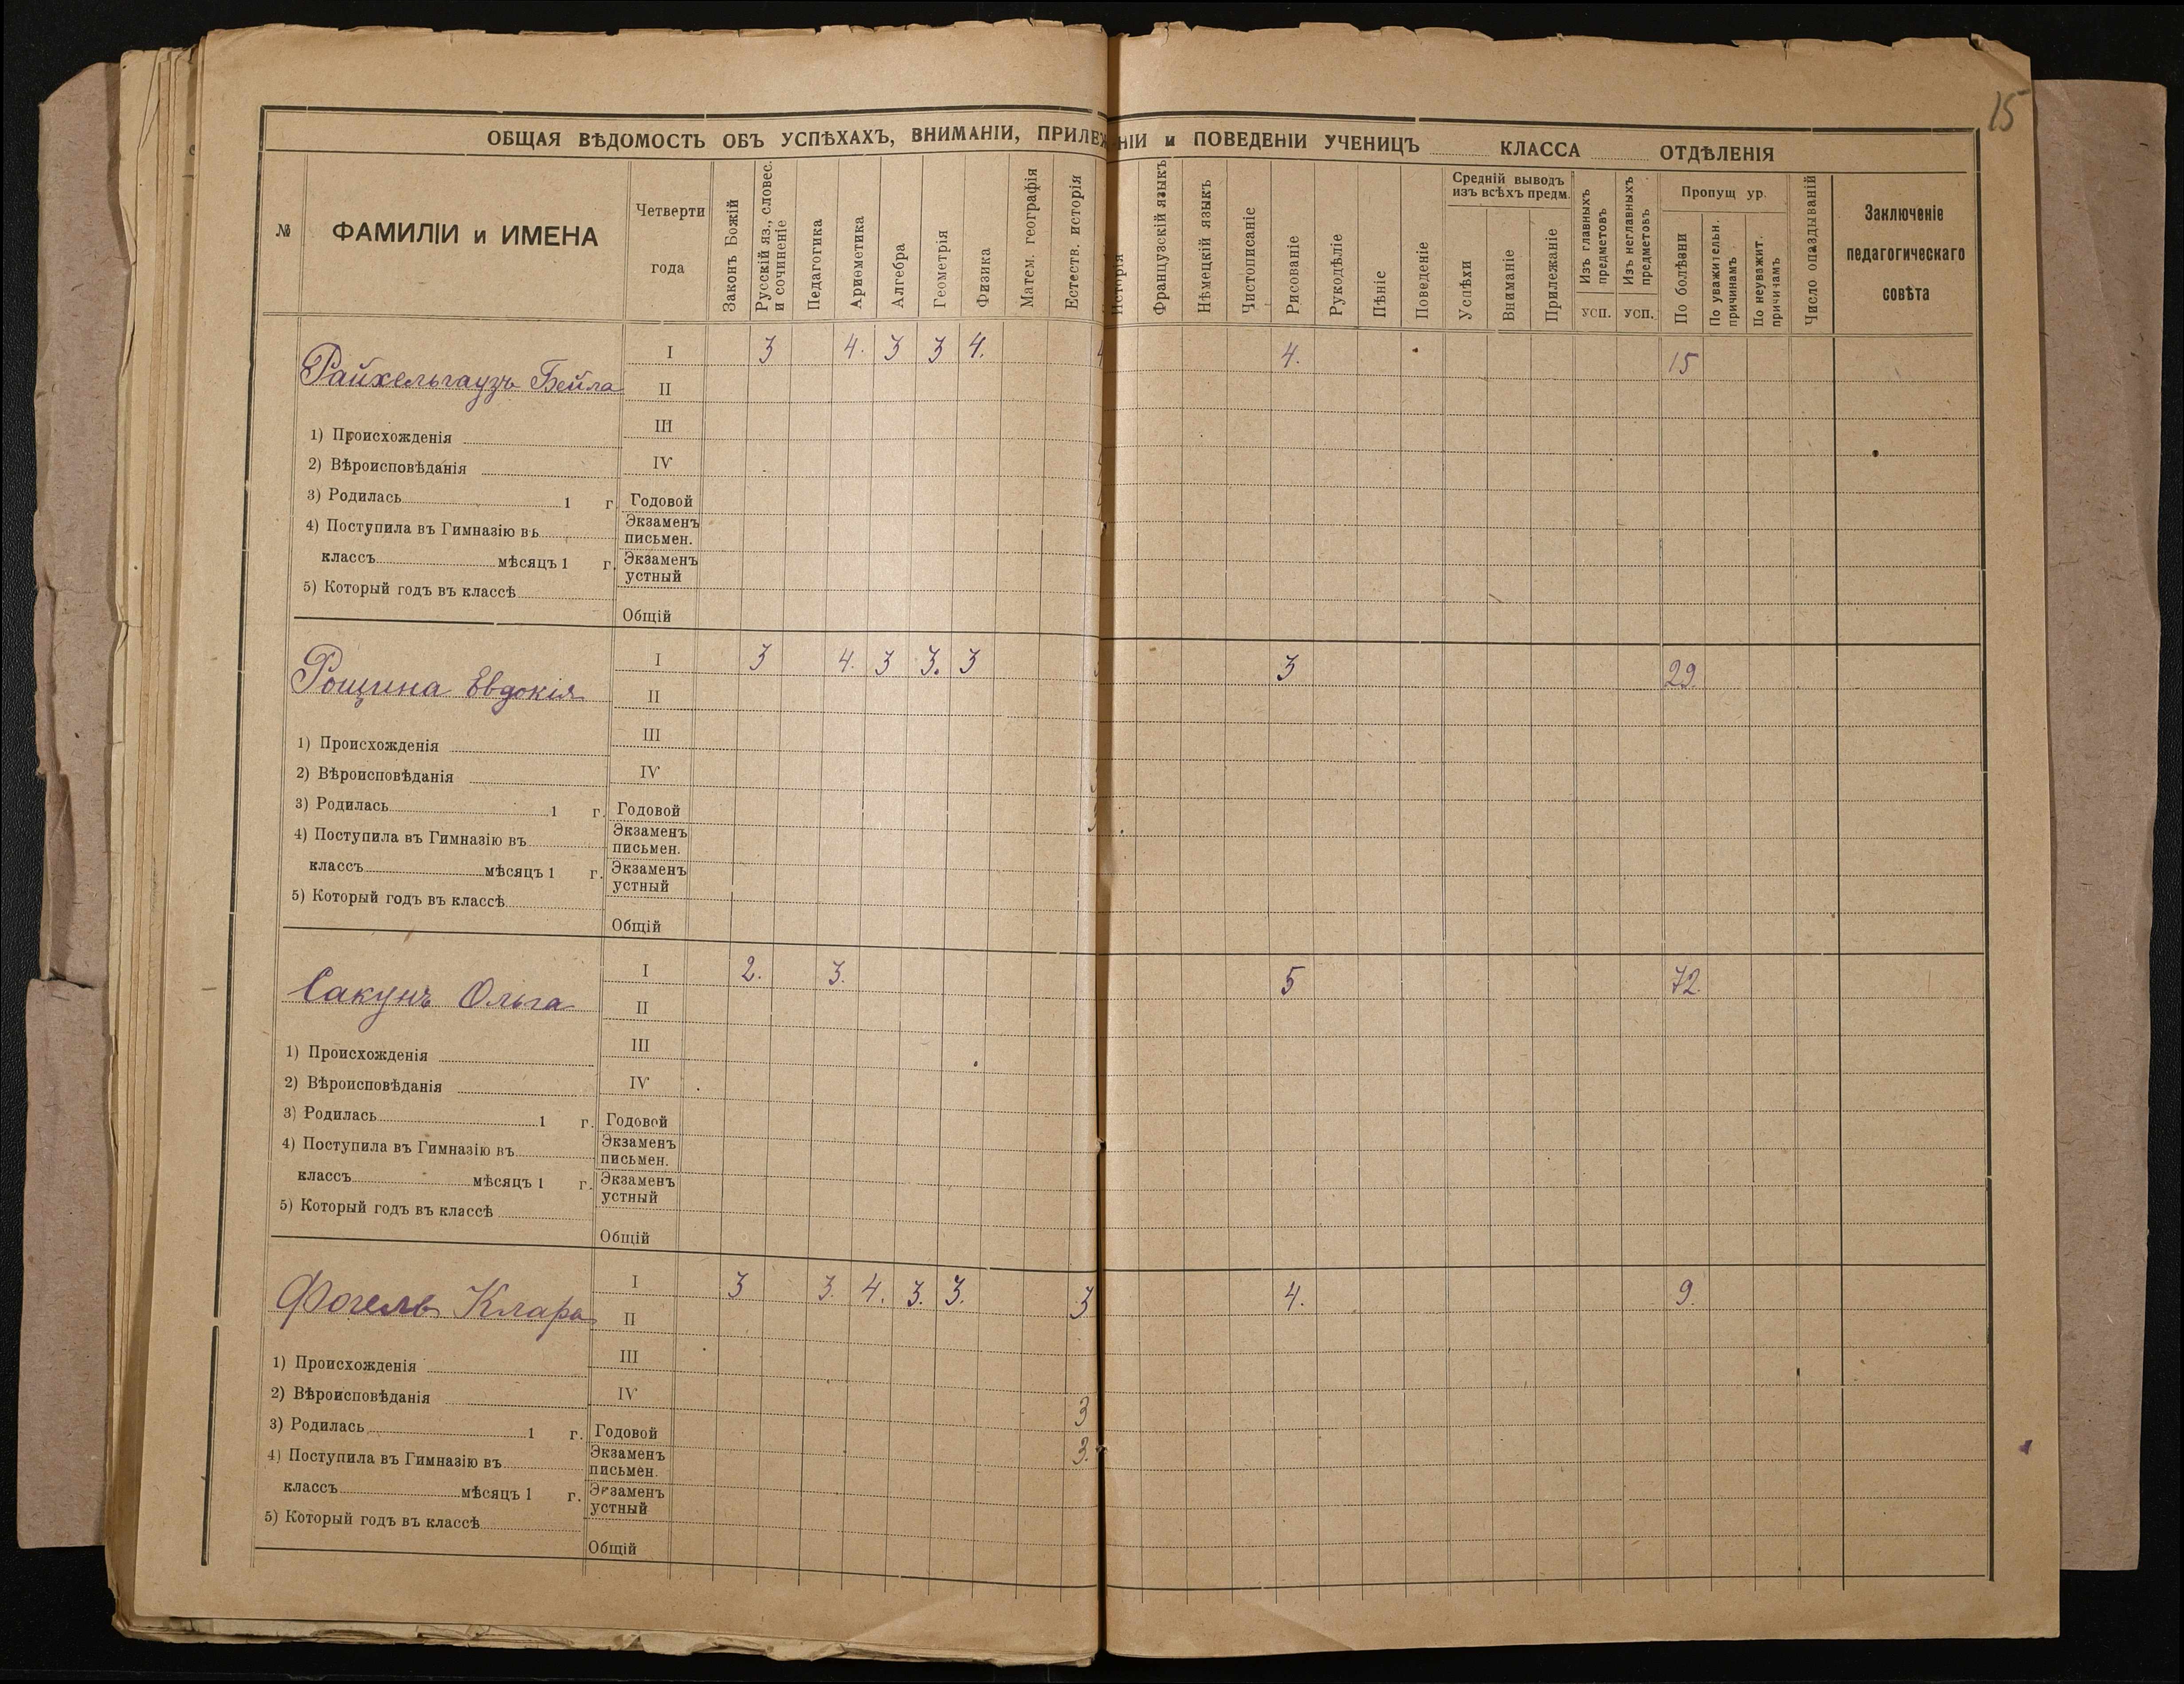 15
ОБЩАЯ ВѢДОМОСТЬ ОБЪ УСПѢХАХЪ, ВНИМАНІИ, ПРИЛЕЖ НІИ и ПОВЕДЕНІИ УЧЕНИЦЪ КЛАССА ОТДѢЛЕНІЯ
№
ФАМИЛІИ и ИМЕНА
Четверти
года
Законъ Божій
Русскій яз., словес.
и сочиненіе
Педагогика
Ариѳметика
Алгебра
Геометрія
Физика
Матем. географія
Естеств. исторія
Исторія
Французскій языкъ
Нѣмецкій языкъ
Чистописаніе
Рисованіе
Рукодѣліе
Пѣніе
Поведеніе
Средній выводъ
изъ всѣхъ предм.
Успѣхи
Вниманіе
Прилежаніе
Изъ главныхъ
предметовъ
усп.
Изъ неглавныхъ
предметовъ
усп.
Пропущ ур.
По болѣзни
По уважительн.
причинамъ
По неуважит.
причинамъ
Число опаздываній
Заключеніе
педагогическаго
совѣта
Райхельгаузъ Бейла
I 3 4. 3 3 4. 4. 15
II
III
IV
1) Происхожденія
2) Вѣроисповѣданія
3) Родилась 1 г. Годовой
4) Поступила въ Гимназію въ Экзаменъ
письмен.
классъ мѣсяцъ 1 г. Экзаменъ
устный
5) Который годъ въ классѣ
Общій
Рощина Евдокія
I 3 4. 3 3. 3 3 29.
II
III
IV
1) Происхожденія
2) Вѣроисповѣданія
3) Родилась 1 г. Годовой
4) Поступила въ Гимназію въ Экзаменъ
письмен.
классъ мѣсяцъ 1 г. Экзаменъ
устный
5) Который годъ въ классѣ
Общій
Сакунъ Ольга
I 2. 3. 5 72.
II
III
IV
1) Происхожденія
2) Вѣроисповѣданія
3) Родилась 1 г. Годовой
4) Поступила въ Гимназію въ Экзаменъ
письмен.
классъ мѣсяцъ 1 г. Экзаменъ
устный
5) Который годъ въ классѣ
Общій
Фогель Клара
I 3 3. 4. 3. 3. 3 4. 9.
II
III
IV 3
1) Происхожденія
2) Вѣроисповѣданія
3) Родилась 1 г. Годовой 3.
4) Поступила въ Гимназію въ Экзаменъ
письмен.
классъ мѣсяцъ 1 г. Экзаменъ
устный
5) Который годъ въ классѣ
Общій